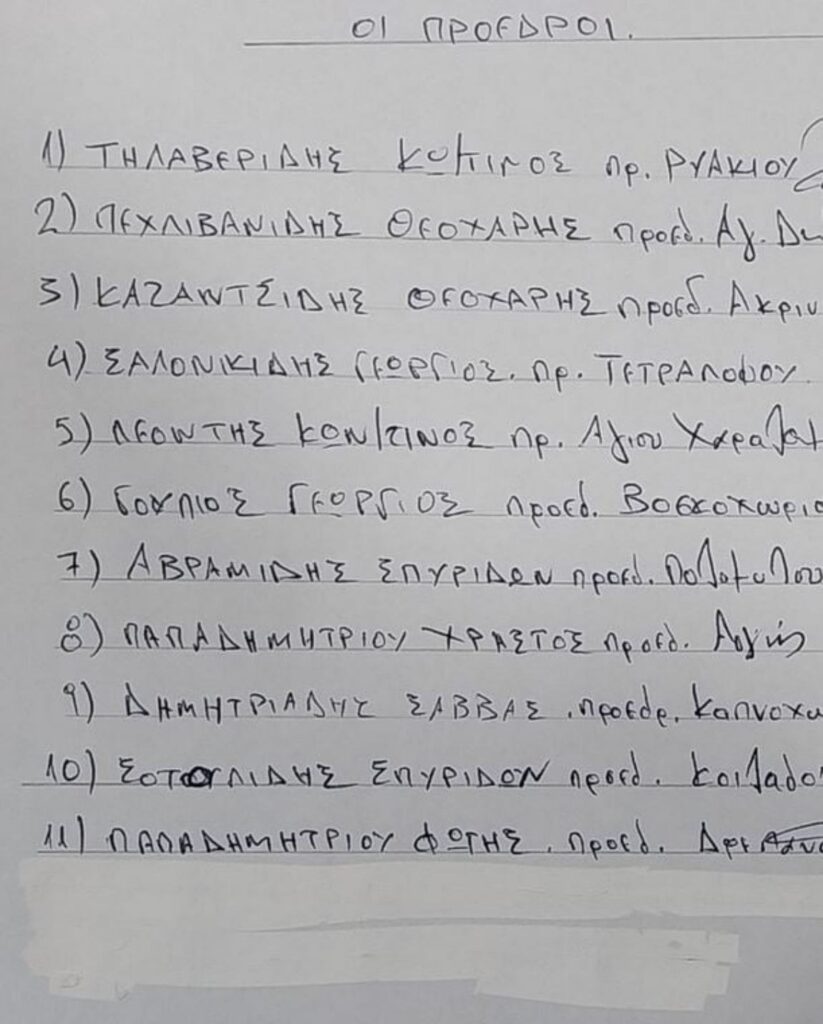 ΟΙ ΠΡΟΕΔΡΟΙ.
1) ΤΗΛΑΒΕΡΙΔΗΣ ΚΩ/ΤΙΝΟΣ πρ. ΡΥΑΚΙΟΥ
2) ΠΕΧΛΙΒΑΝΙΔΗΣ ΘΕΟΧΑΡΗΣ προεδ. Αγ. Δη
3) ΚΑΖΑΝΤΣΙΔΗΣ ΘΕΟΧΑΡΗΣ προεδ. Ακριν
4) ΣΑΛΟΝΙΚΙΔΗΣ ΓΕΩΡΓΙΟΣ. πρ. ΤΕΤΡΑΛΟΦΟΥ.
5) ΛΕΟΝΤΗΣ ΚΩΝ/ΤΙΝΟΣ πρ. Αγιου Χαραλαμ
6) ΓΟΥΠΙΟΣ ΓΕΩΡΓΙΟΣ προεδ. Βοσκοχωριο
7) ΑΒΡΑΜΙΔΗΣ ΣΠΥΡΙΔΩΝ προεδ.
8) ΠΑΠΑΔΗΜΗΤΡΙΟΥ ΧΡΗΣΤΟΣ προεδ.
9) ΔΗΜΗΤΡΙΑΔΗΣ ΣΑΒΒΑΣ .προεδρ. Καπνοχω
10) ΣΙΔΗΣ ΣΠΥΡΙΔΩΝ προεδ. Κοιλαδο
11) ΠΑΠΑΔΗΜΗΤΡΙΟΥ ΦΩΤΗΣ. προεδ. Δρε